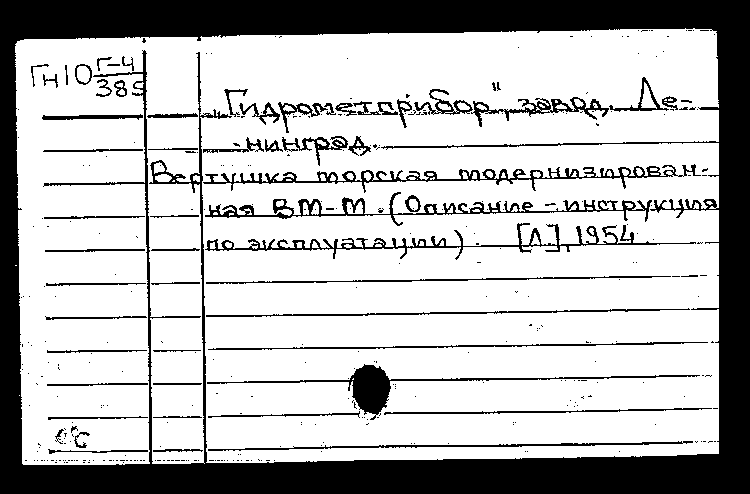 Гн10 Г-4/385
„Гидрометприбор", завод. Ле-
нинград.
Вертушка морская модернизирован-
ная ВМ-М. (Описание-инструкция
по эксплуатации). [Л.], 1954.